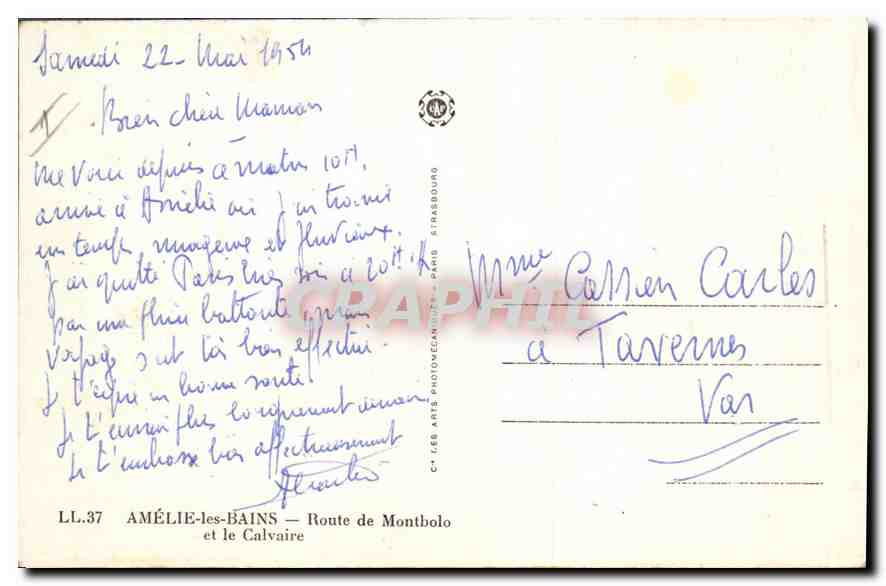 Samedi 22 - Mai 1954
Bien chère Maman
Me voici depuis ce matin 10H,
arrivé à Amélie où j'ai trouvé
un temps nuageux et pluvieux.
J'ai quitté Paris hier soir à 20H
par une pluie battante, mais
voyage s'est très bien effectué.
Je t'espère en bonne santé.
Je t'écrirai plus longuement demain,
Je t'embrasse bien affectueusement
Mme Cassien Carles
à Tavernes
Var
CAP
Cie LES ARTS PHOTOMÉCANIQUES - PARIS - STRASBOURG
CPAPHIL
LL.37 AMÉLIE-les-BAINS — Route de Montbolo
et le Calvaire